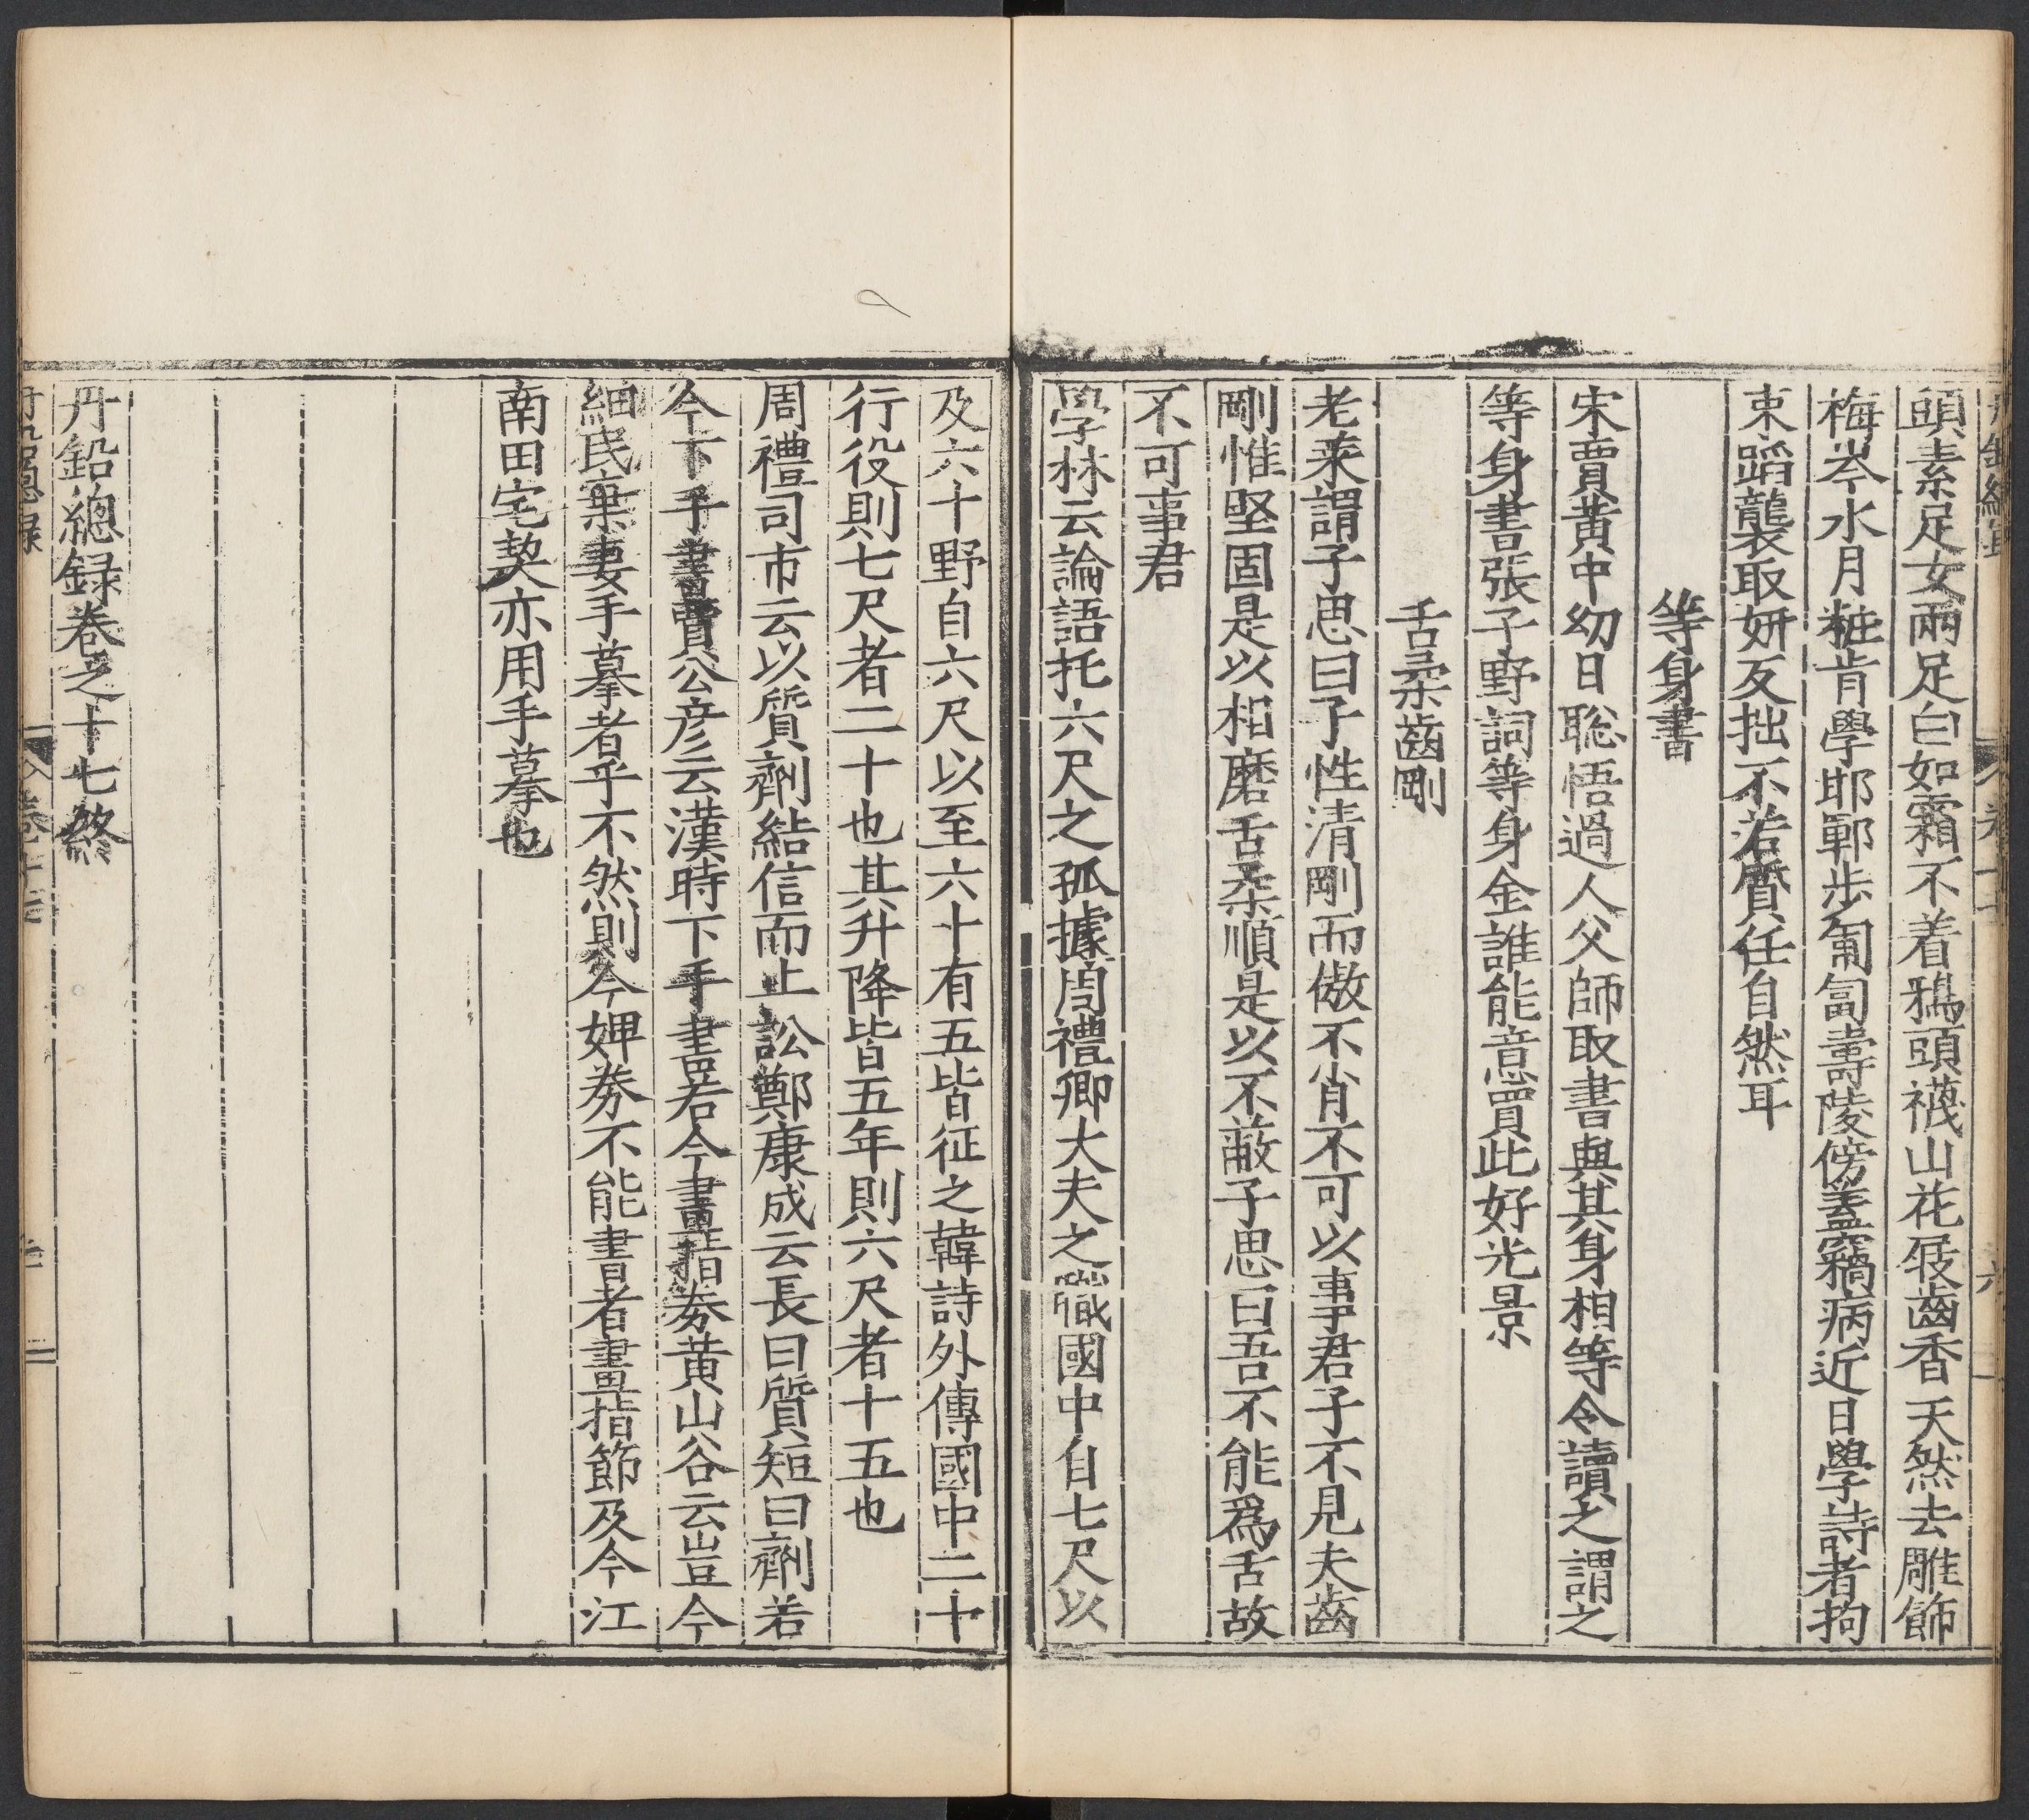 頭素足女兩足白如霜不着鴉頭襪山花屐齒香天然去雕飾
梅岑水月粧肯學邯鄲步匍匐壽陵傍蓋竊病近日學詩者拘
束蹈襲取妍反拙不若質任自然耳
等身書
宋賈黃中幼日聡悟過人父師取書與其身相等令讀之謂之
等身書張子野詞等身金誰能意買此好光景
舌柔齒剛
老萊謂子思曰子性清剛而傲不肖不可以事君子不見夫齒
剛惟堅固是以相磨舌柔順是以不敝子思曰吾不能爲舌故
不可事君
學林云論語托六尺之孤據周禮卿大夫之職國中自七尺以
及六十野自六尺以至六十有五皆征之韓詩外傳國中二十
行役則七尺者二十也其升降皆五年則六尺者十五也
周禮司市云以質劑結信而止訟鄭康成云長曰質短曰劑若
今下手書賈公彦云漢時下手書若今畫指券黃山谷云豈今
細民棄妻手摹者乎不然則今婢券不能書者畫指節及今江
南田宅契亦用手摹也
丹鉛總録卷之十七終